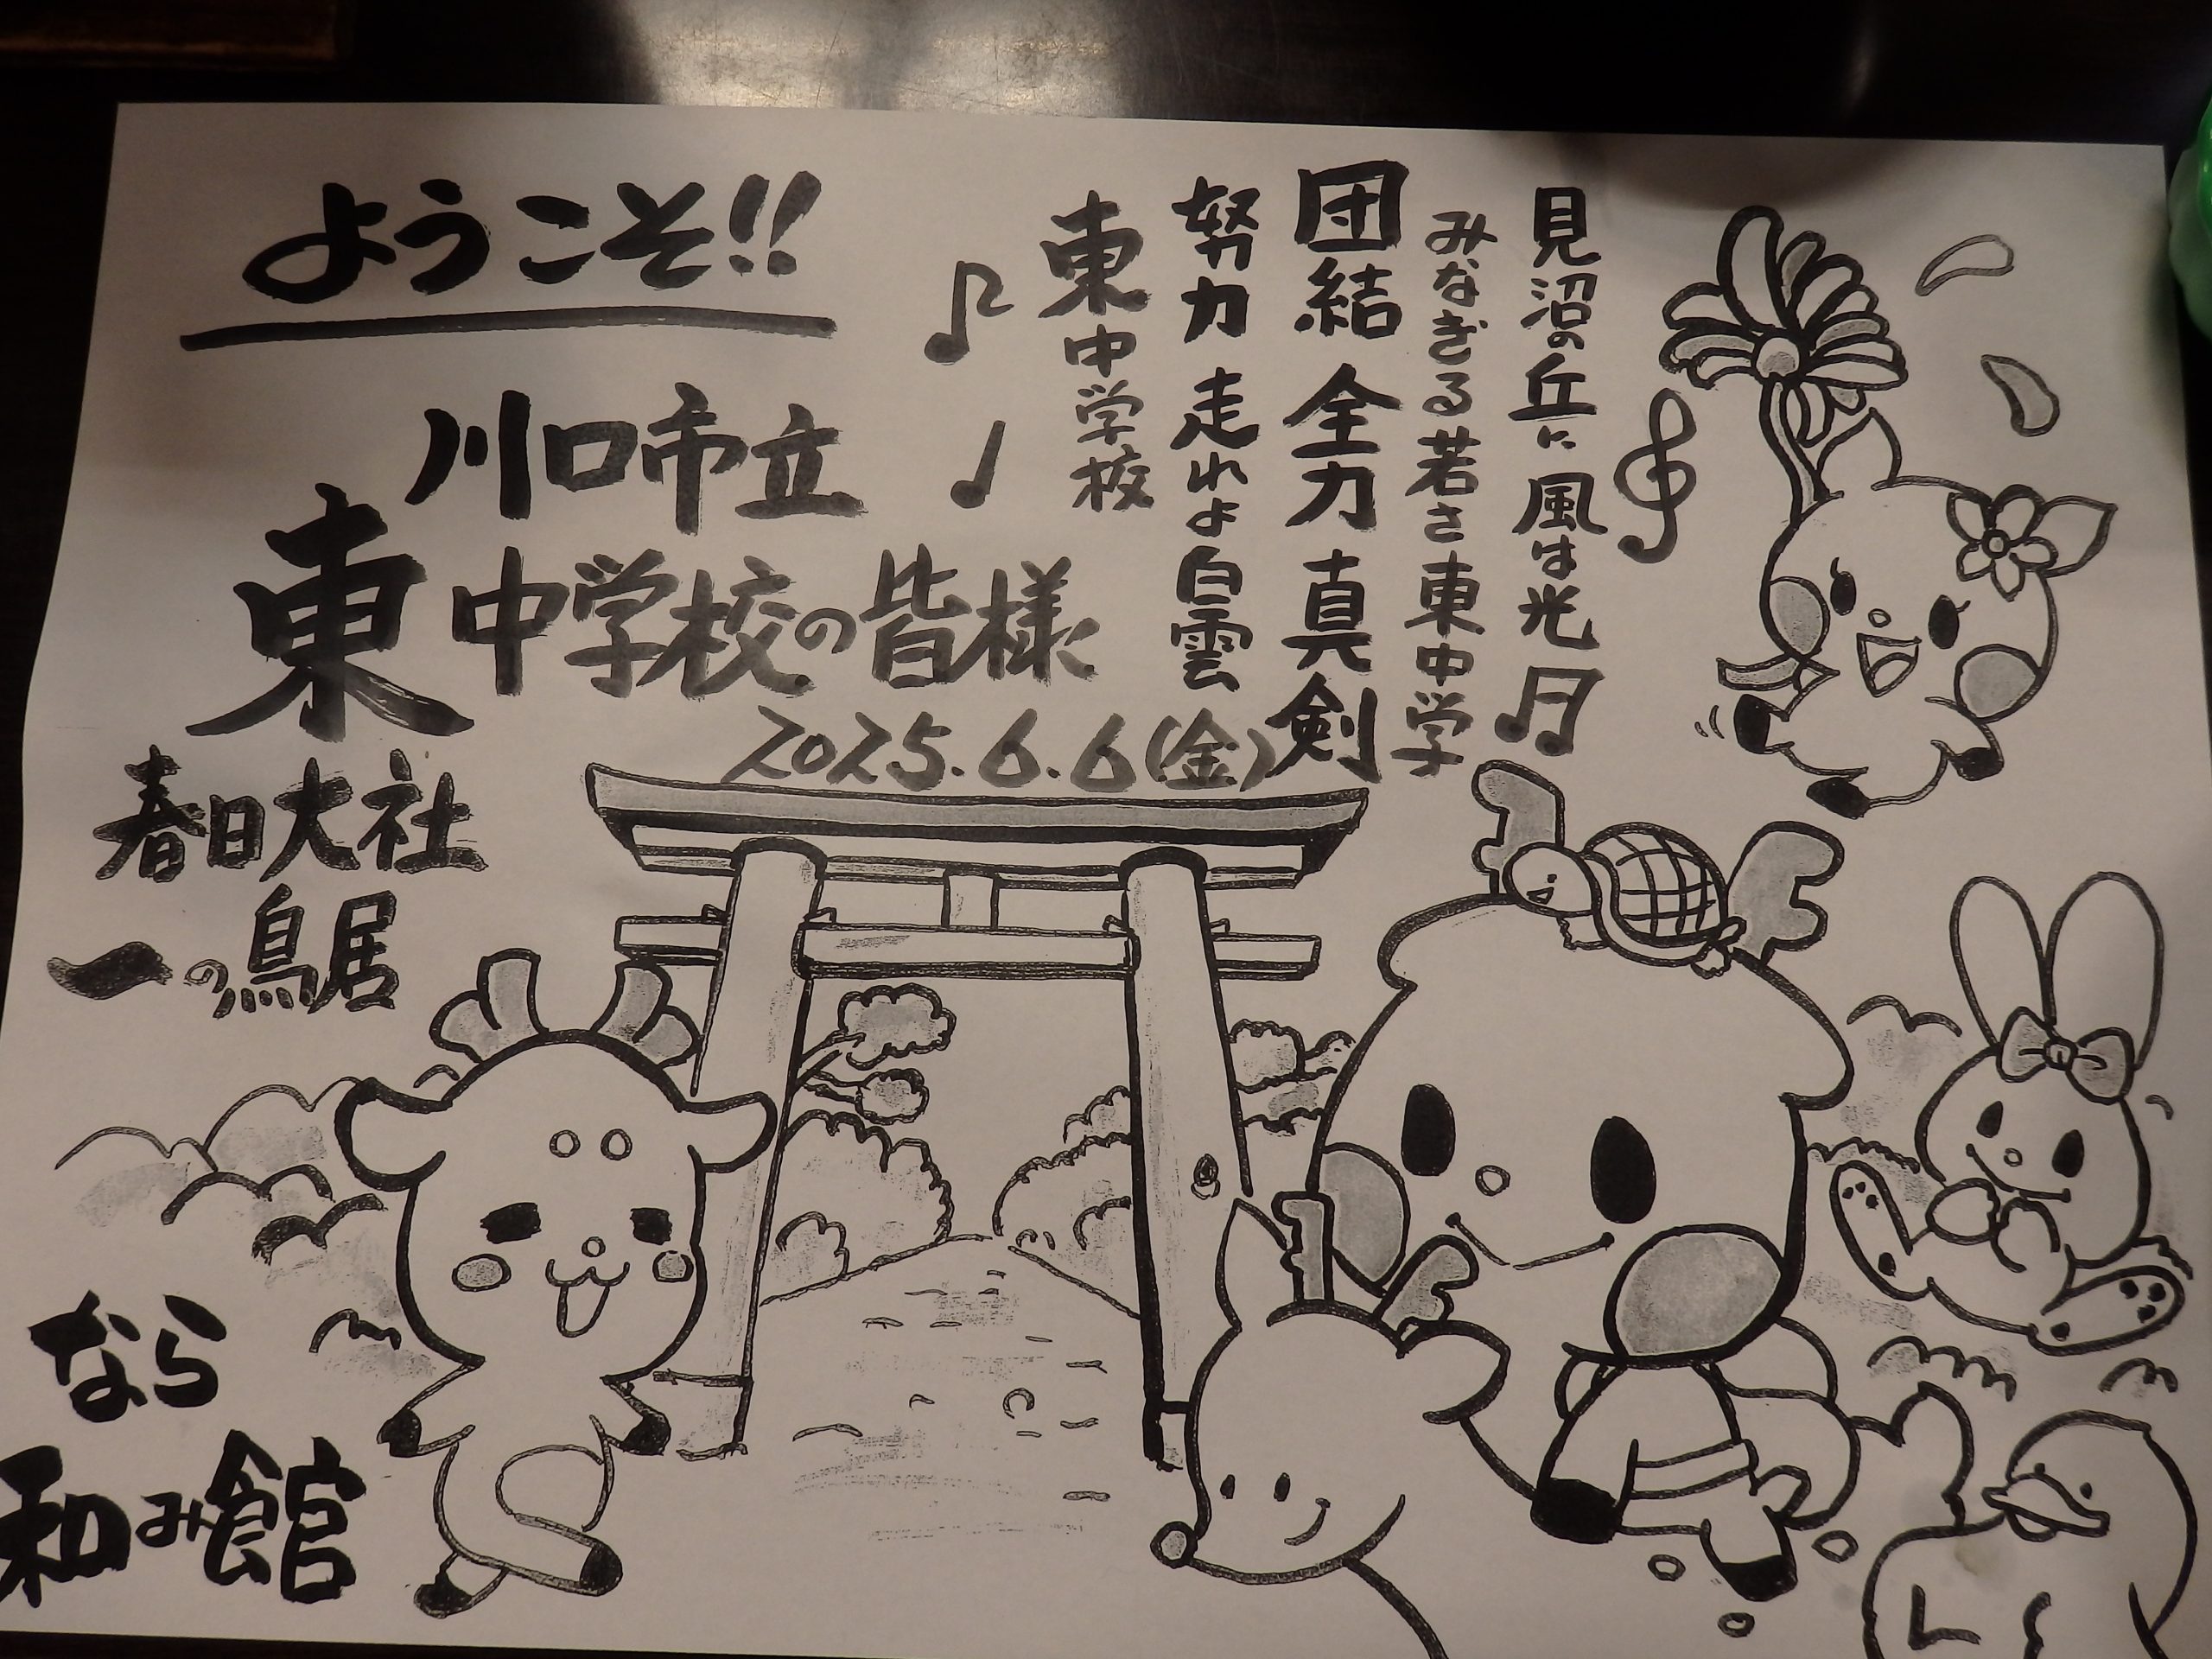 ようこそ!!
川口市立
東中学校の皆様
2025.6.6(金)
見沼の丘に 風は光
みなぎる若さ東中学
団結 全力 真剣
努力 走れよ白雲
東中学校
春日大社
一の鳥居
なら
和み館